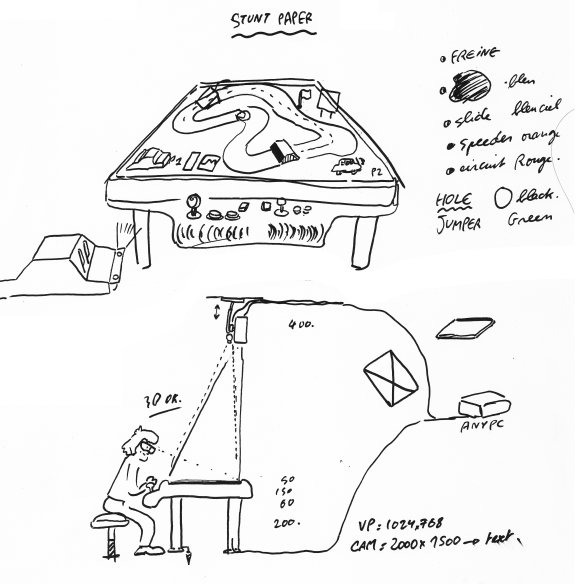 STUNT PAPER
FREINE
bleu
slide bleu ciel
speeder orange
circuit Rouge.
HOLE black.
JUMPER Green
P1
P2
400.
3D OK.
ANYPC
50
150
60
200.
VP: 1024,768
CAM = 2000x1500 → text.